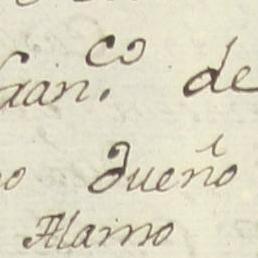 Fran.co de
o dueño
Alamo